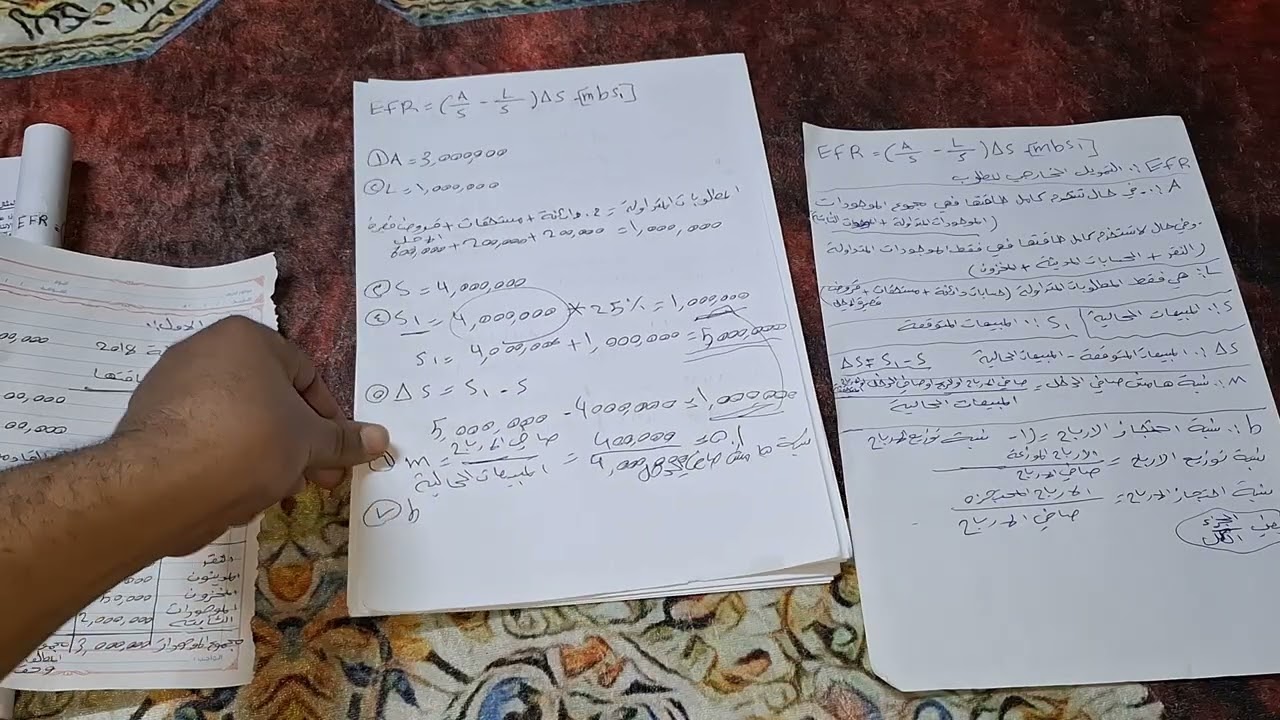 EFR = (A/S - L/S) ΔS - [mbS1]
① A = 3,000,000
② L = 1,000,000
المطلوبات المتداولة = ح. دائنة + مستحقات + قروض قصيرة الأجل
600,000 + 200,000 + 200,000 = 1,000,000
③ S = 4,000,000
④ S1 = 4,000,000 * 25% = 1,000,000
S1 = 4,000,000 + 1,000,000 = 5,000,000
⑤ ΔS = S1 - S
5,000,000 - 4,000,000 = 1,000,000
m = صافي الارباح / المبيعات الحالية = 400,000 / 4,000,000 = 0.1 نسبة هامش صافي الدخل
⑦ b
EFR = (A/S - L/S) ΔS - [mbS1]
EFR: التمويل الخارجي المطلوب
A: في حال تستخدم كامل طاقتها فهي مجموع الموجودات
(الموجودات المتداولة + الموجودات الثابتة)
وفي حال لا تستخدم كامل طاقتها فهي فقط الموجودات المتداولة
(النقد + الحسابات المدينة + المخزون)
L: هي فقط المطلوبات المتداولة (حسابات دائنة + مستحقات + قروض قصيرة الاجل)
S: المبيعات الحالية S1: المبيعات المتوقعة
ΔS: المبيعات المتوقعة - المبيعات الحالية ΔS = S1 - S
m: نسبة هامش صافي الدخل = صافي الارباح / المبيعات الحالية
b: نسبة احتجاز الارباح = (1 - نسبة توزيع الارباح
نسبة توزيع الارباح = الارباح الموزعة / صافي الارباح
نسبة احتجاز الارباح = الارباح المحتجزة / صافي الارباح
الجزء / الكل
EFR =
2018
00,000
00,000
النقد
المدينون
المخزون 50,000
الموجودات الثابتة 2,000,000
مجموع الموجودات 3,000,000